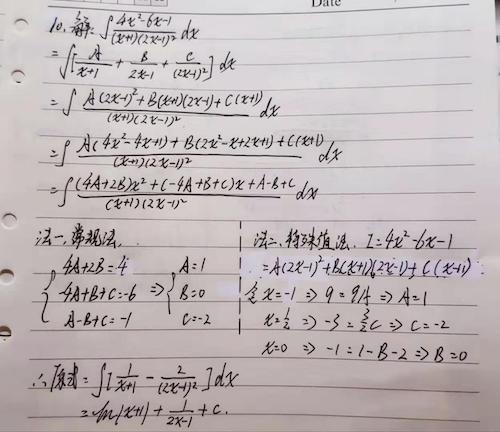 Date
10. 解: ∫ (4x²-6x-1)/((x+1)(2x-1)²) dx
= ∫[A/(x+1) + B/(2x-1) + C/(2x-1)²] dx
= ∫ (A(2x-1)²+B(x+1)(2x-1)+C(x+1))/((x+1)(2x-1)²) dx
= ∫ (A(4x²-4x+1)+B(2x²-x+2x+1)+C(x+1))/((x+1)(2x-1)²) dx
= ∫ ((4A+2B)x²+(-4A+B+C)x+A-B+C)/((x+1)(2x-1)²) dx
法一、常规法.
{ 4A+2B=4
-4A+B+C=-6
A-B+C=-1
⇒ { A=1
B=0
C=-2
法二、特殊值法. I=4x²-6x-1
=A(2x-1)²+B(x+1)(2x-1)+C(x+1)
令x=-1 ⇒ 9=9A ⇒ A=1
x=1/2 ⇒ -3=3/2 C ⇒ C=-2
x=0 ⇒ -1=1-B-2 ⇒ B=0
∴原式= ∫[1/(x+1) - 2/(2x-1)²] dx
=ln|x+1|+1/(2x-1)+C.